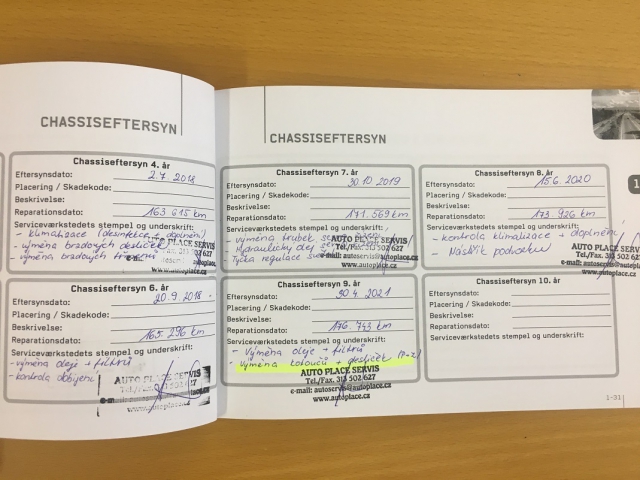 CHASSISEFTERSYN
Chassiseftersyn 4. år
Eftersynsdato: 2.7. 2018
Placering / Skadekode:
Beskrivelse:
Reparationsdato: 163 615 km
Serviceværkstedets stempel og underskrift:
- klimatizace (desinfekce + doplnění)
- výměna brzdových destiček
- výměna brzdových
AUTO PLACE SERVIS
www.autoplace.cz
Chassiseftersyn 6. år
Eftersynsdato: 20.9. 2018
Placering / Skadekode:
Beskrivelse:
Reparationsdato: 165 296 km
Serviceværkstedets stempel og underskrift:
- výměna oleje + filtrů
- kontrola dobíjení
AUTO PLACE SERVIS
www.autoplace.cz
CHASSISEFTERSYN
Chassiseftersyn 7. år
Eftersynsdato: 30.10 2019
Placering / Skadekode:
Beskrivelse:
Reparationsdato: 171.569 km
Serviceværkstedets stempel og underskrift:
- výměna trubek
- hydraulický olej
- Tyčka regulace
AUTO PLACE SERVIS
Tel./Fax. 313 502 627
e-mail: autoservis@autoplace.cz
www.autoplace.cz
Chassiseftersyn 8. år
Eftersynsdato: 15.6. 2020
Placering / Skadekode:
Beskrivelse:
Reparationsdato: 173.926 km
Serviceværkstedets stempel og underskrift:
- kontrola klimatizace + doplnění
- Nástřik podvozku
AUTO PLACE SERVIS
Tel./Fax. 313 502 627
e-mail: autoservis@autoplace.cz
www.autoplace.cz
Chassiseftersyn 9. år
Eftersynsdato: 30.4. 2021
Placering / Skadekode:
Beskrivelse:
Reparationsdato: 176.743 km
Serviceværkstedets stempel og underskrift:
- Výměna oleje + filtrů
- výměna kotoučů + destiček P+Z
AUTO PLACE SERVIS
Tel./Fax. 313 502 627
e-mail: autoservis@autoplace.cz
www.autoplace.cz
Chassiseftersyn 10. år
Eftersynsdato:
Placering / Skadekode:
Beskrivelse:
Reparationsdato:
Serviceværkstedets stempel og underskrift:
1
1-31